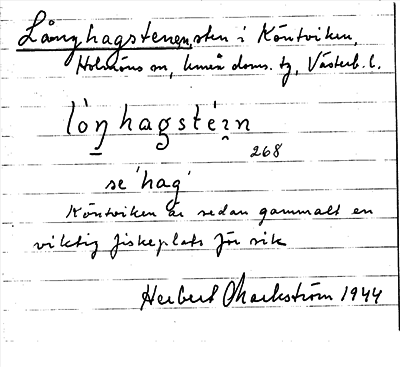 Långhagstenen, sten i Köntviken,
Holmöns sn, Umeå doms. tg, Västerb. l.
lòŋhagstéin
268
se 'hag'
Köntviken är sedan gammalt en
viktig fiskeplats för sik
Herbert Markström 1944